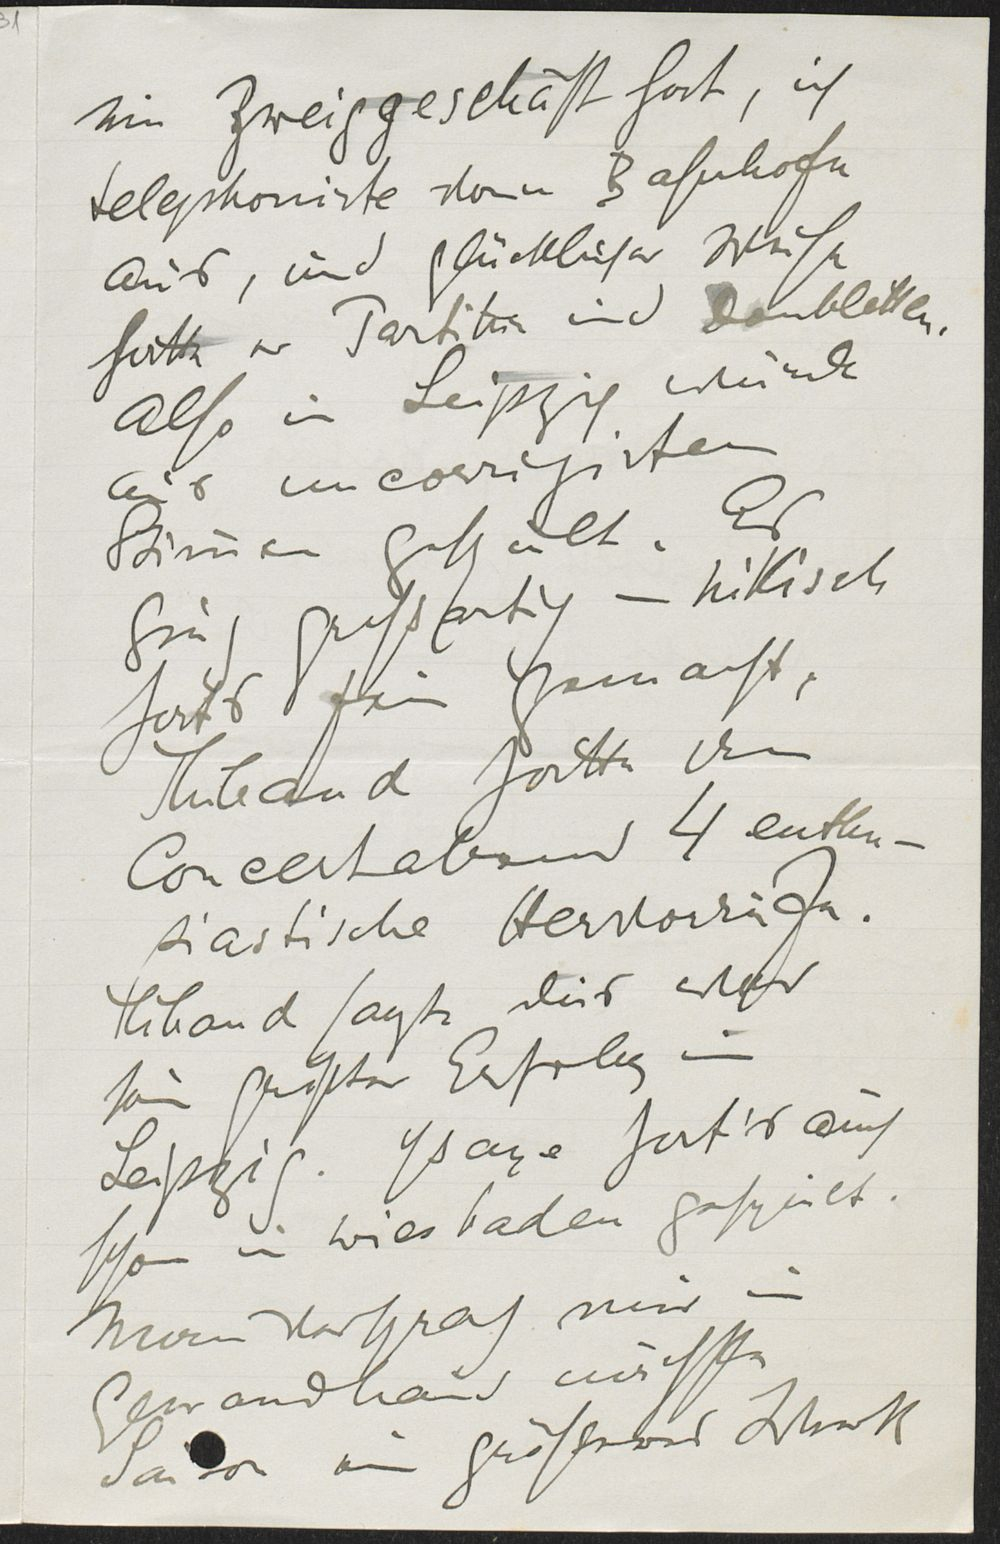 31
ein Zweiggeschäft hat, ich
telephonirte vom Bahnhofe
aus, und glücklicher Weise
hatte er Partitur und Doubletten.
Also in Leipzig wurde
aus uncorrigirten
Stimmen gespielt. Es
ging großartig – Nikisch
hat's fein gemacht,
Thibaud hatte am
Concertabend 4 enthu-
siastische Hervorrufe.
Thibaud sagte dies war
sein größter Erfolg in
Leipzig. Ysaye hat's auch
schon in Wiesbaden gespielt.
Man versprach mir im
Gewandhaus nächste
Saison ein größeres Werk